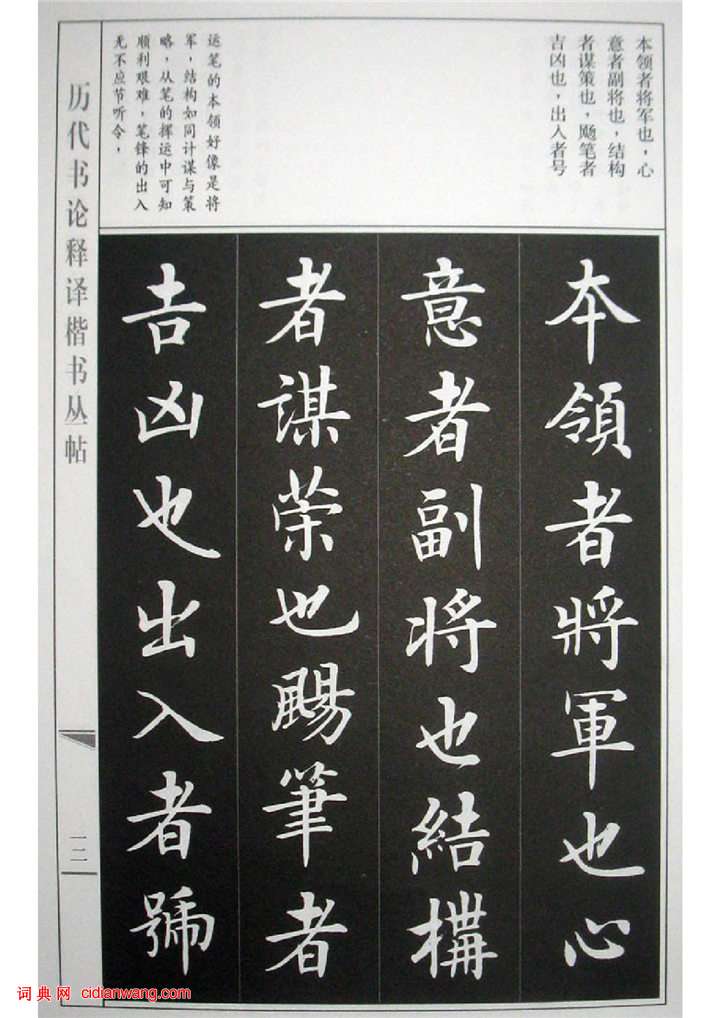 本领者将军也，心
意者副将也，结构
者谋策也，飏笔者
吉凶也，出入者号
运笔的本领好像是将
军，结构如同计谋与策
略，从笔的挥运中可知
顺利艰难，笔锋的出入
无不应节听令，
本領者將軍也心
意者副将也結構
者謀策也颺筆者
吉凶也出入者號
历代书论释译楷书丛帖
一二
词典网 cidianwang.com